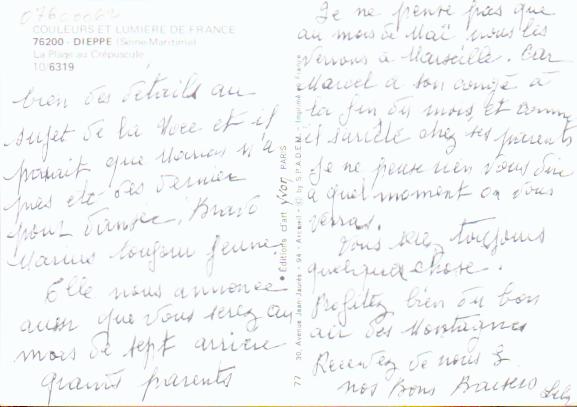 07600062
COULEURS ET LUMIERE DE FRANCE
76200 - DIEPPE (Seine-Maritime)
La Plage au Crépuscule
10/6319
bien des détails au
sujet de la Noce et il
parait que Marius n'a
pas été des dernier
pour danser, Bravo
Marius toujour jeune
Elle nous annonce
aussi que vous serez au
mois de sept arrière
grands parents
● Éditions d'art yvon PARIS
30, Avenue Jean-Jaurès - 94 - Arcueil - © by S.P.A.D.E.M. - Imprimé en France
77
Je ne pense pas que
au mois de Maï nous les
verrons à Marseille. Car
Marcel a son congé à
la fin du mois, et comme
il s'arrête chez ses parents
Je ne peux rien vous dire
à quel moment on vous
verras.
Vous serez toujours
quelque chose.
Profitez bien du bon
air des Montagnes
Recevez de nous
nos Bons Baisers